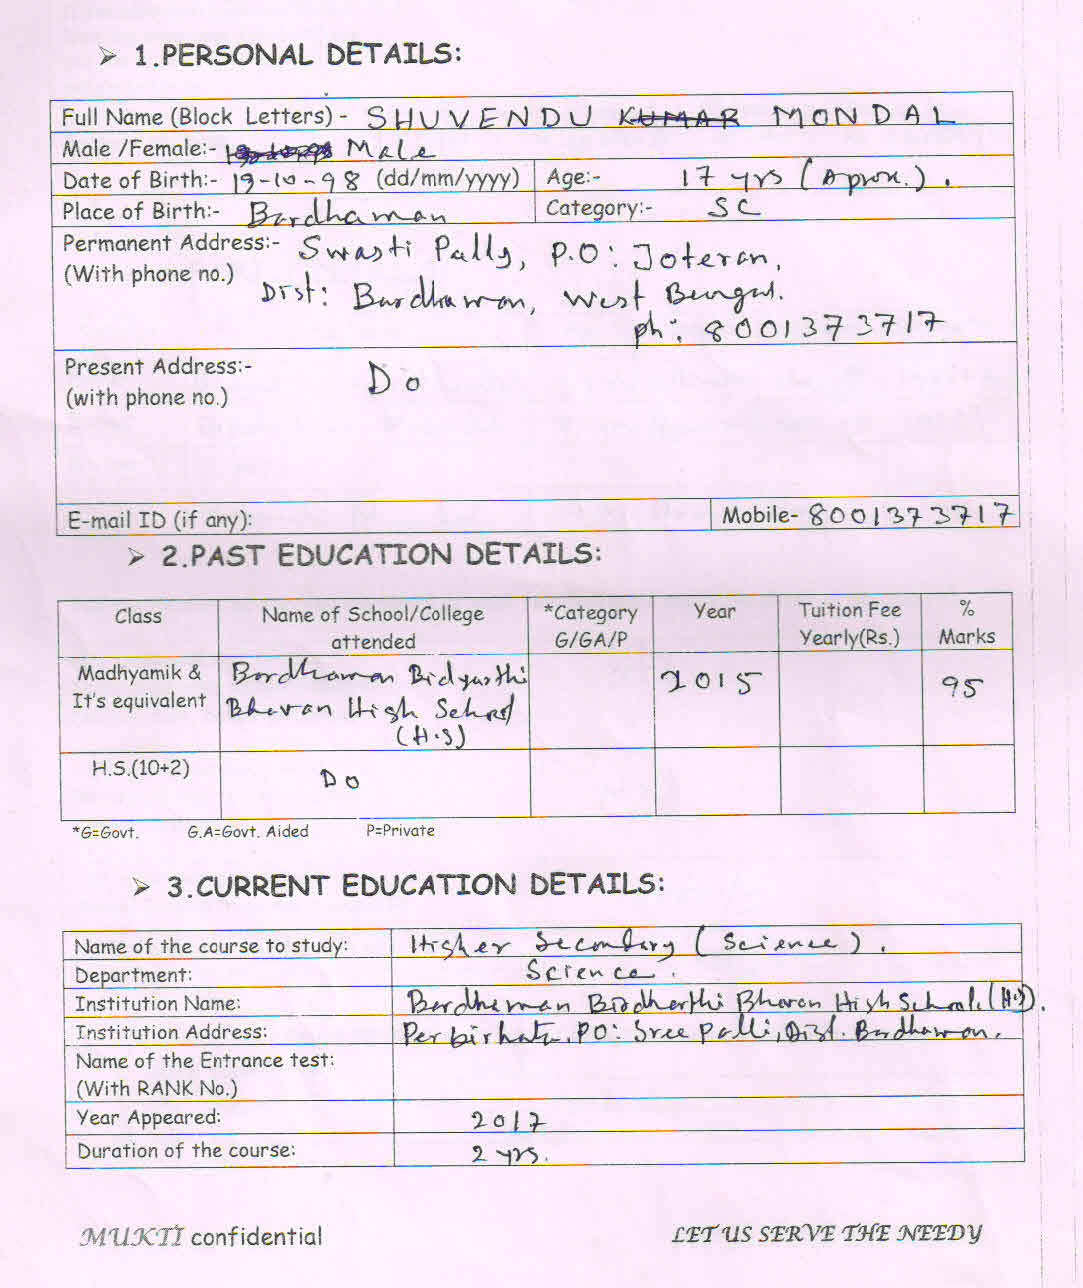 ➢ 1.PERSONAL DETAILS:
Full Name (Block Letters) - SHUVENDU KUMAR MONDAL
Male /Female:- Male
Date of Birth:- 19-10-98 (dd/mm/yyyy) Age:- 17 yrs (Aprox.).
Place of Birth:- Bardhaman Category:- SC
Permanent Address:- Swasti Pally, P.O: Joteran,
(With phone no.) Dist: Bardhaman, West Bengal.
ph: 8001373717
Present Address:- Do
(with phone no.)
E-mail ID (if any): Mobile- 8001373717
➢ 2.PAST EDUCATION DETAILS:
Class Name of School/College *Category Year Tuition Fee %
attended G/GA/P Yearly(Rs.) Marks
Madhyamik & Bardhaman Bidyarthi 2015 95
It's equivalent Bhavan High School
(H.S)
H.S.(10+2) Do
*G=Govt. G.A=Govt. Aided P=Private
➢ 3.CURRENT EDUCATION DETAILS:
Name of the course to study: Higher Secondary (Science).
Department: Science.
Institution Name: Bardhaman Bidharthi Bhavan High School. (H.S).
Institution Address: PO: Sree Palli, Dist. Bardhaman.
Name of the Entrance test:
(With RANK No.)
Year Appeared: 2017
Duration of the course: 2 yrs.
MUKTI confidential LET US SERVE THE NEEDY